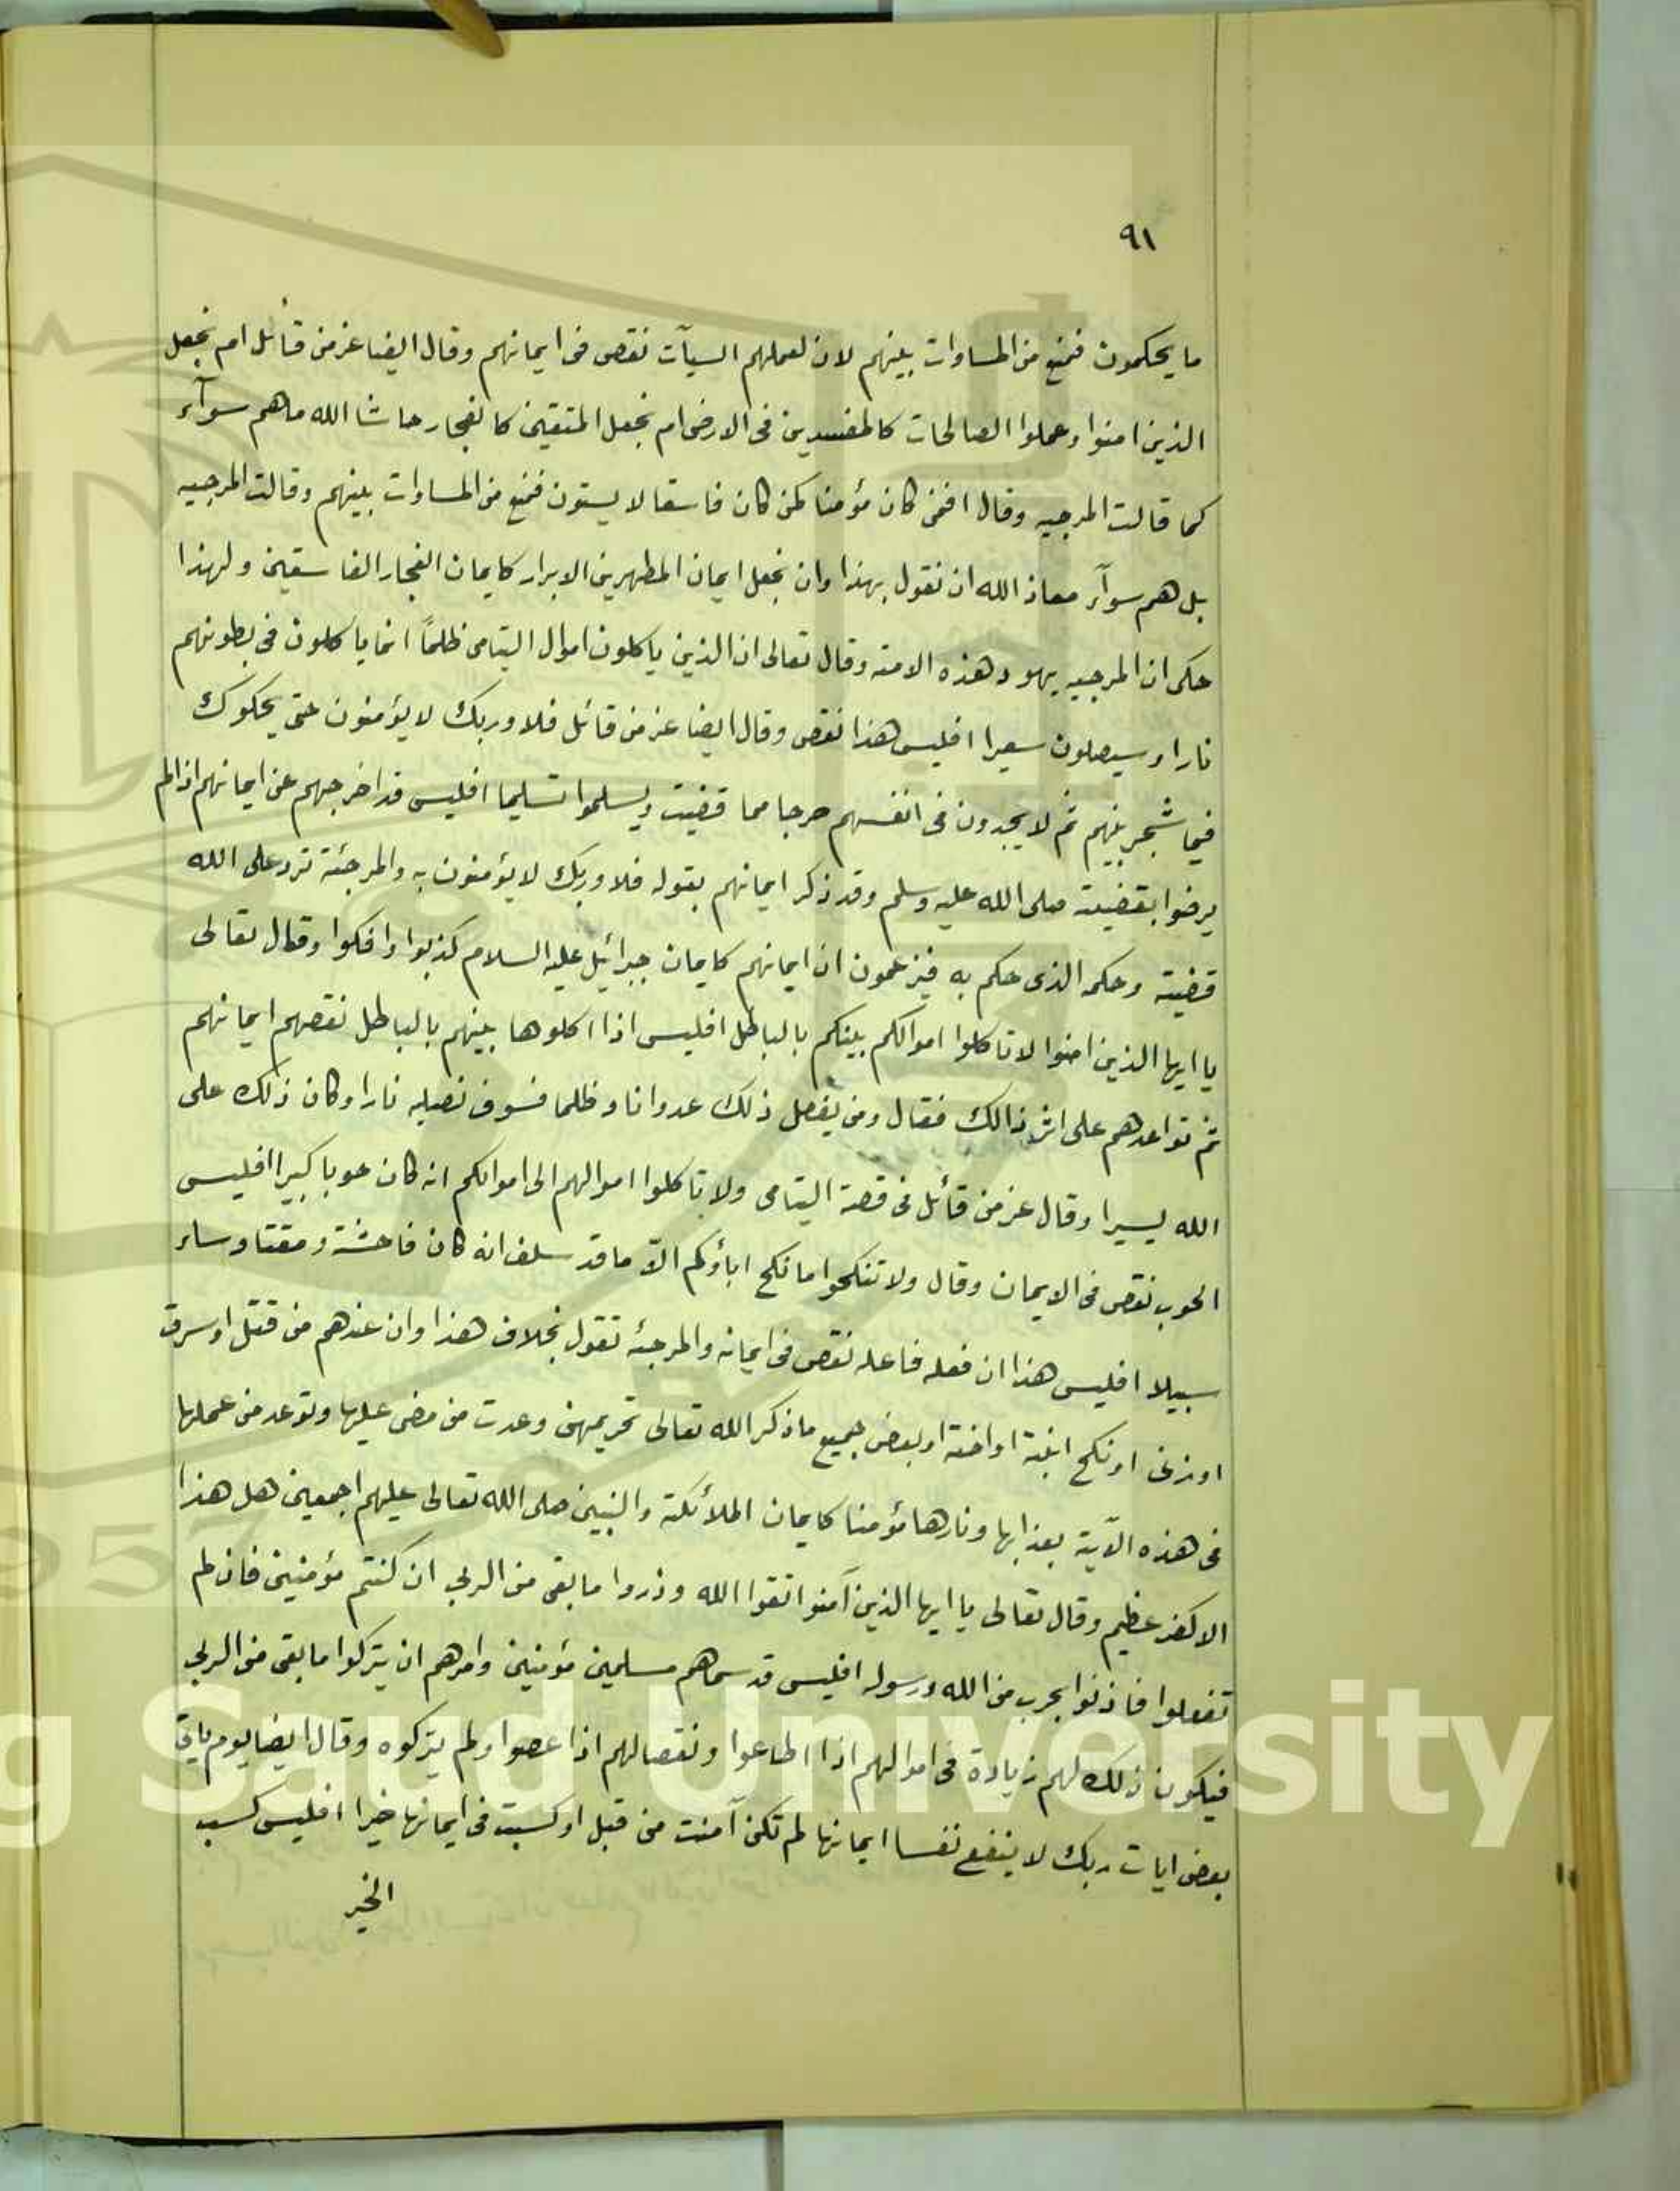 ٩١
ما يحكمون فمنع من المساوات بينهم لان لعملهم السيآت نقص فى ايمانهم وقال ايضا عز من قائل ام نجعل
الذين امنوا وعملوا الصالحات كالمفسدين فى الارض ام نجعل المتقين كالفجار حاشا الله ماهم سوآء
كما قالت المرجيه وقال افمن كان مؤمنا كمن كان فاسقا لا يستون فمنع من المساوات بينهم وقالت المرجيه
بل هم سوآء معاذ الله ان نقول بهذا وان نجعل ايمان المطهرين الابرار كايمان الفجار الفاسقين ولهذا
حكى ان المرجيه يهود هذه الامته وقال تعالى ان الذين ياكلون اموال اليتامى ظلماً انما ياكلون فى بطونهم
نارا وسيصلون سعيرا افليس هذا نقص وقال ايضا عز من قائل فلا وربك لا يؤمنون حتى يحكموك
فيما شجر بينهم ثم لا يجدون فى انفسهم حرجا مما قضيت ويسلموا تسليما افليس قد اخرجهم عن ايمانهم اذا لم
يرضوا بقضيته صلى الله عليه وسلم وقد ذكر ايمانهم بقوله فلا وربك لا يؤمنون به والمرجئة ترد على الله
قضيته وحكمه الذى حكم به فيزعمون ان ايمانهم كايمان جبرائيل عليه السلام كذبوا وافكوا وقال تعالى
يا ايها الذين امنوا لا تاكلوا اموالكم بينكم بالباطل افليس اذا اكلوها بينهم بالباطل نقصهم ايمانهم
ثم تواعدهم على اثر ذالك فقال ومن يفعل ذلك عدوانا وظلما فسوف نصليه نارا وكان ذلك على
الله يسيرا وقال عز من قائل فى قصة اليتامى ولا تاكلوا اموالهم الى اموالكم انه كان حوبا كبيرا افليس
الحوب نقص فى الايمان وقال ولا تنكحوا ما نكح اباؤكم الاّ ما قد سلف انه كان فاحشة ومقتا وساء
سبيلا افليس هذا ان فعله فاعله نقص فى ايمانه والمرجئه تقول بخلاف هذا وان عندهم من قتل او سرق
او زنى او نكح ابنته او اخته او بعض جميع ما ذكر الله تعالى تحريمهن وعدت من مضى عليها وتوعد من عملها
فى هذه الآية بعذابها ونارها مؤمنا كايمان الملائكة والنبيين صلى الله تعالى عليهم اجمعين هل هذا
الا كفر عظيم وقال تعالى يا ايها الذين آمنوا اتقوا الله وذروا ما بقى من الربى ان كنتم مؤمنين فان لم
تفعلوا فاذنوا بحرب من الله ورسوله افليس قد سماهم مسلمين مؤمنين وامرهم ان يتركوا ما بقى من الربى
فيكون ذلك لهم زيادة فى اموالهم اذا اطاعوا ونقصا لهم اذا عصوا ولم يتركوه وقال ايضا يوم ياتى
بعض ايات ربك لا ينفع نفسا ايمانها لم تكن آمنت من قبل او كسبت فى ايمانها خيرا افليس كسب
الخير
g Saud University
957